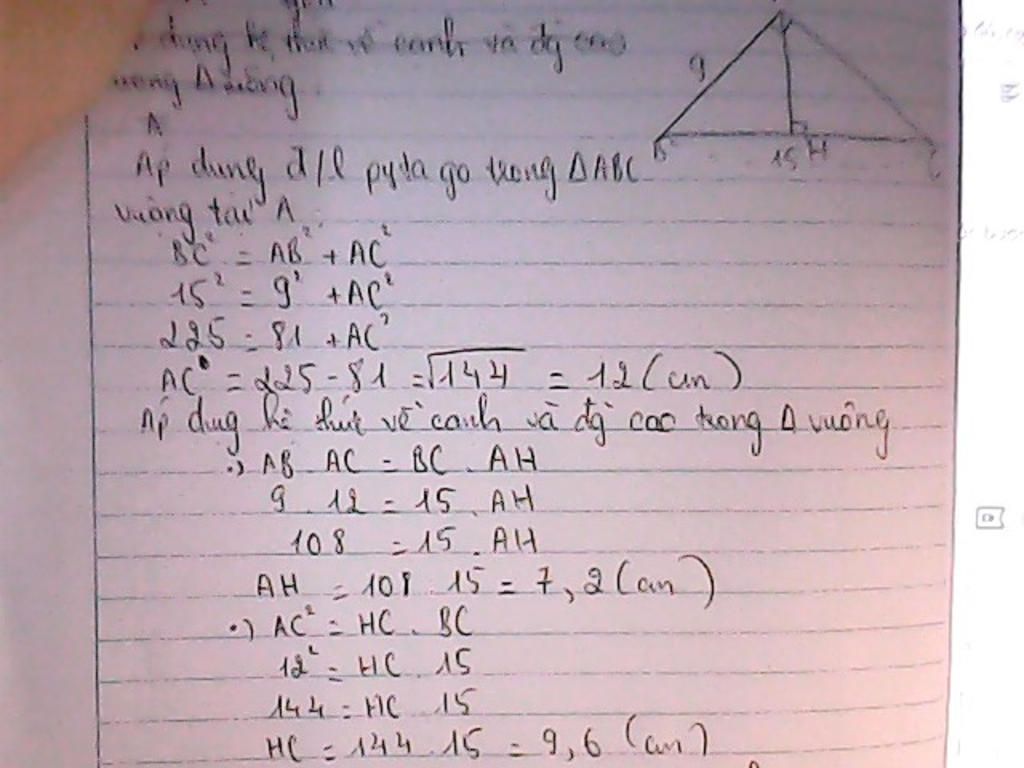 dụng hệ thức về cạnh và đg cao
trong Δ vuông
A
Áp dụng đ/l pytago trong ΔABC
vuông tại A:
BC² = AB² + AC²
15² = 9² + AC²
225 = 81 + AC²
AC = 225 - 81 = √144 = 12 (cm)
Áp dụg hệ thức về cạnh và đg cao trong Δ vuông
•) AB . AC = BC . AH
9 . 12 = 15 . AH
108 = 15 . AH
AH = 108 : 15 = 7,2 (cm)
•) AC² = HC . BC
12² = HC . 15
144 = HC . 15
HC = 144 : 15 = 9,6 (cm)
9
B
15
H
C